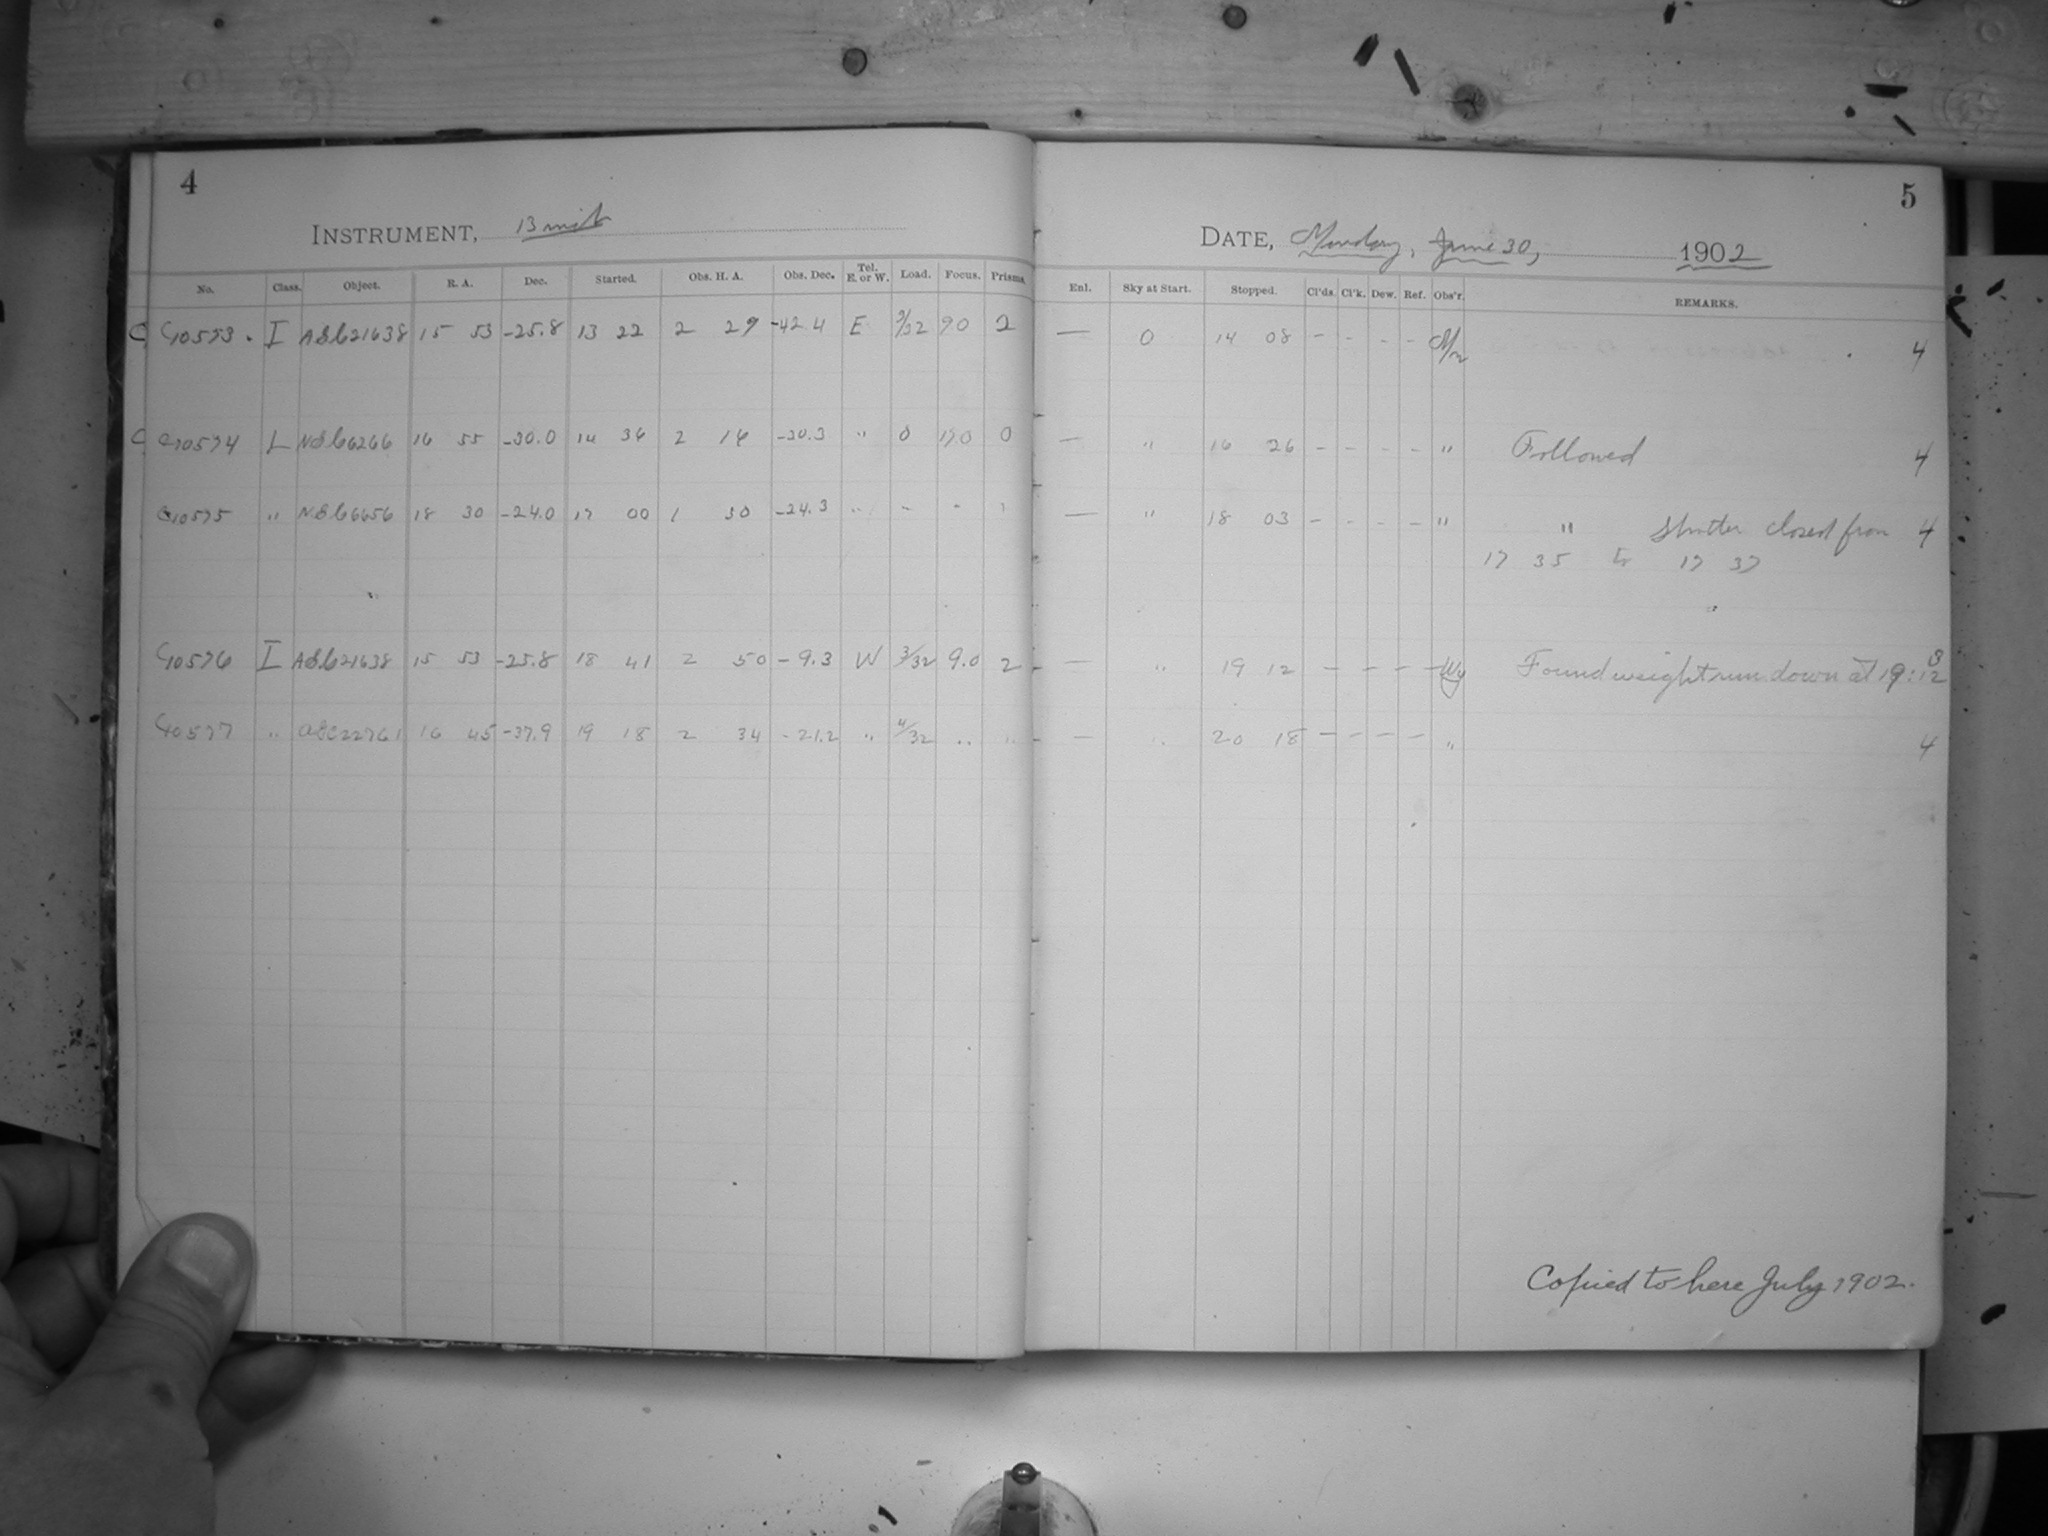 4
INSTRUMENT, 13 inch
No. Class. Object. R. A. Dec. Started. Obs. H. A. Obs. Dec. Tel. E. or W. Load. Focus. Prisms.
C C10573 . I AGC21638 15 53 -25.8 13 22 2 29 -42.4 E 3/32 9.0 2
C C10574 L NGC6266 16 55 -30.0 14 36 2 14 -30.3 " 0 17.0 0
C10575 " NGC6656 18 30 -24.0 17 00 1 30 -24.3 " " " "
C10576 I AGC21638 15 53 -25.8 18 41 2 50 -9.3 W 3/32 9.0 2
C10577 " AGC22761 16 45 -37.9 19 18 2 34 -21.2 " 4/32 " "
5
DATE, Monday, June 30, 1902
Enl. Sky at Start. Stopped. Cl'ds. Cl'k. Dew. Ref. Obs'r. REMARKS.
— 0 14 08 - - - - 4
— " 16 26 - - - - " Followed 4
— " 18 03 - - - - " " Shutter closed from 4
17 35 to 17 37
— " 19 12 - - - - Wy Found weight run down at 19:12
3
— " 20 18 - - - - " 4
Copied to here July 1902.